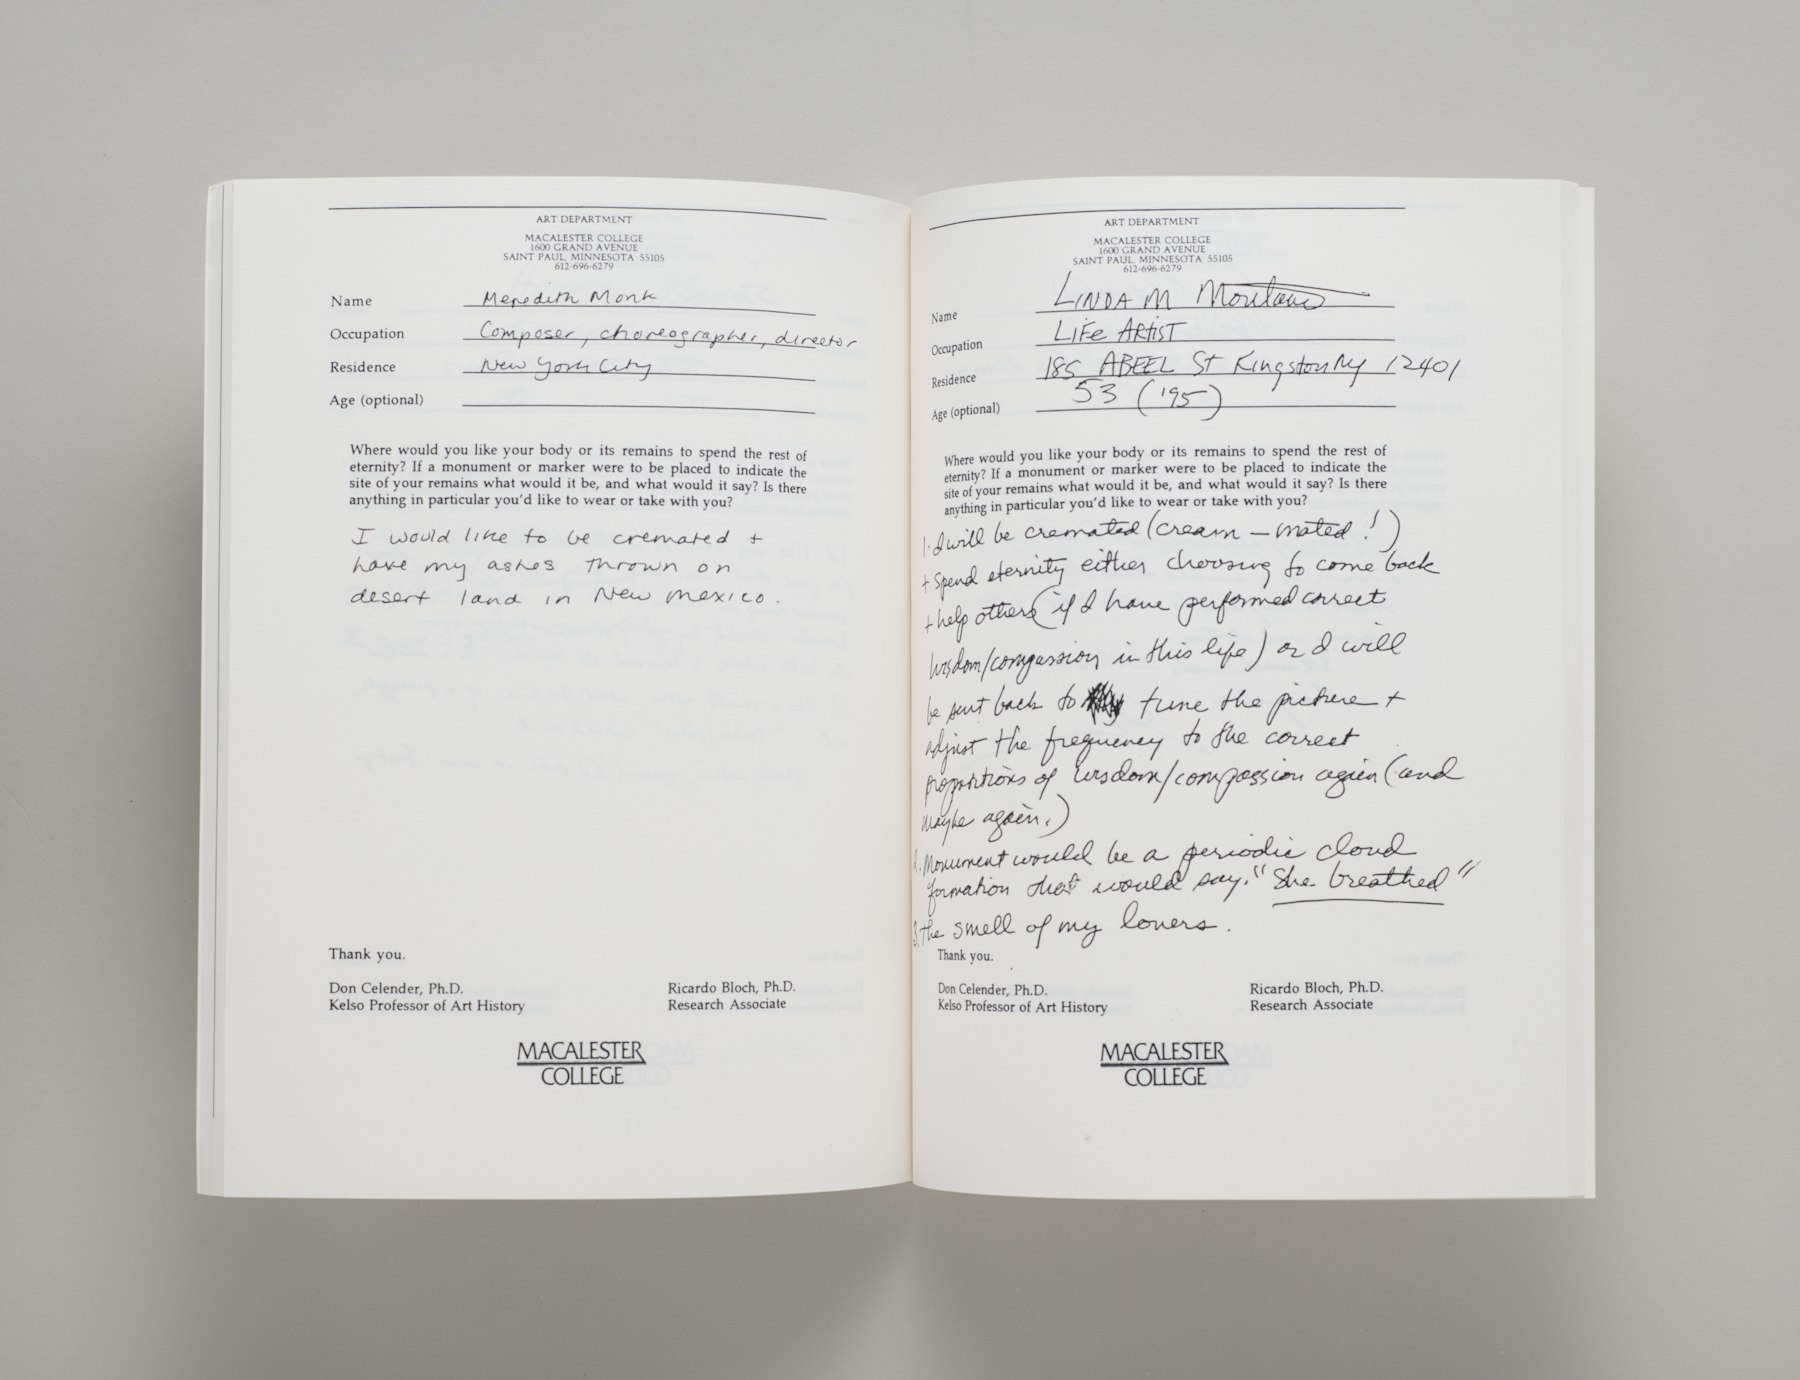 ART DEPARTMENT
MACALESTER COLLEGE
1600 GRAND AVENUE
SAINT PAUL, MINNESOTA 55105
612-696-6279
Name Meredith Monk
Occupation Composer, choreographer, director
Residence New York City
Age (optional)
Where would you like your body or its remains to spend the rest of
eternity? If a monument or marker were to be placed to indicate the
site of your remains what would it be, and what would it say? Is there
anything in particular you'd like to wear or take with you?
I would like to be cremated +
have my ashes thrown on
desert land in New Mexico.
Thank you.
Don Celender, Ph.D.
Kelso Professor of Art History
Ricardo Bloch, Ph.D.
Research Associate
MACALESTER
COLLEGE
ART DEPARTMENT
MACALESTER COLLEGE
1600 GRAND AVENUE
SAINT PAUL, MINNESOTA 55105
612-696-6279
Name LINDA M Montano
Occupation LIFE ARTIST
Residence 185 ABEEL St Kingston Ny 12401
Age (optional) 53 ('95)
Where would you like your body or its remains to spend the rest of
eternity? If a monument or marker were to be placed to indicate the
site of your remains what would it be, and what would it say? Is there
anything in particular you'd like to wear or take with you?
1. I will be cremated (cream - mated!)
+ spend eternity either choosing to come back
+ help others (if I have performed correct
wisdom/compassion in this life) or I will
be sent back to tune the picture +
adjust the frequency to the correct
proportions of wisdom/compassion again (and
maybe again.)
2. Monument would be a periodic cloud
formation that would say. "She breathed"
3. the smell of my lovers.
Thank you.
Don Celender, Ph.D.
Kelso Professor of Art History
Ricardo Bloch, Ph.D.
Research Associate
MACALESTER
COLLEGE